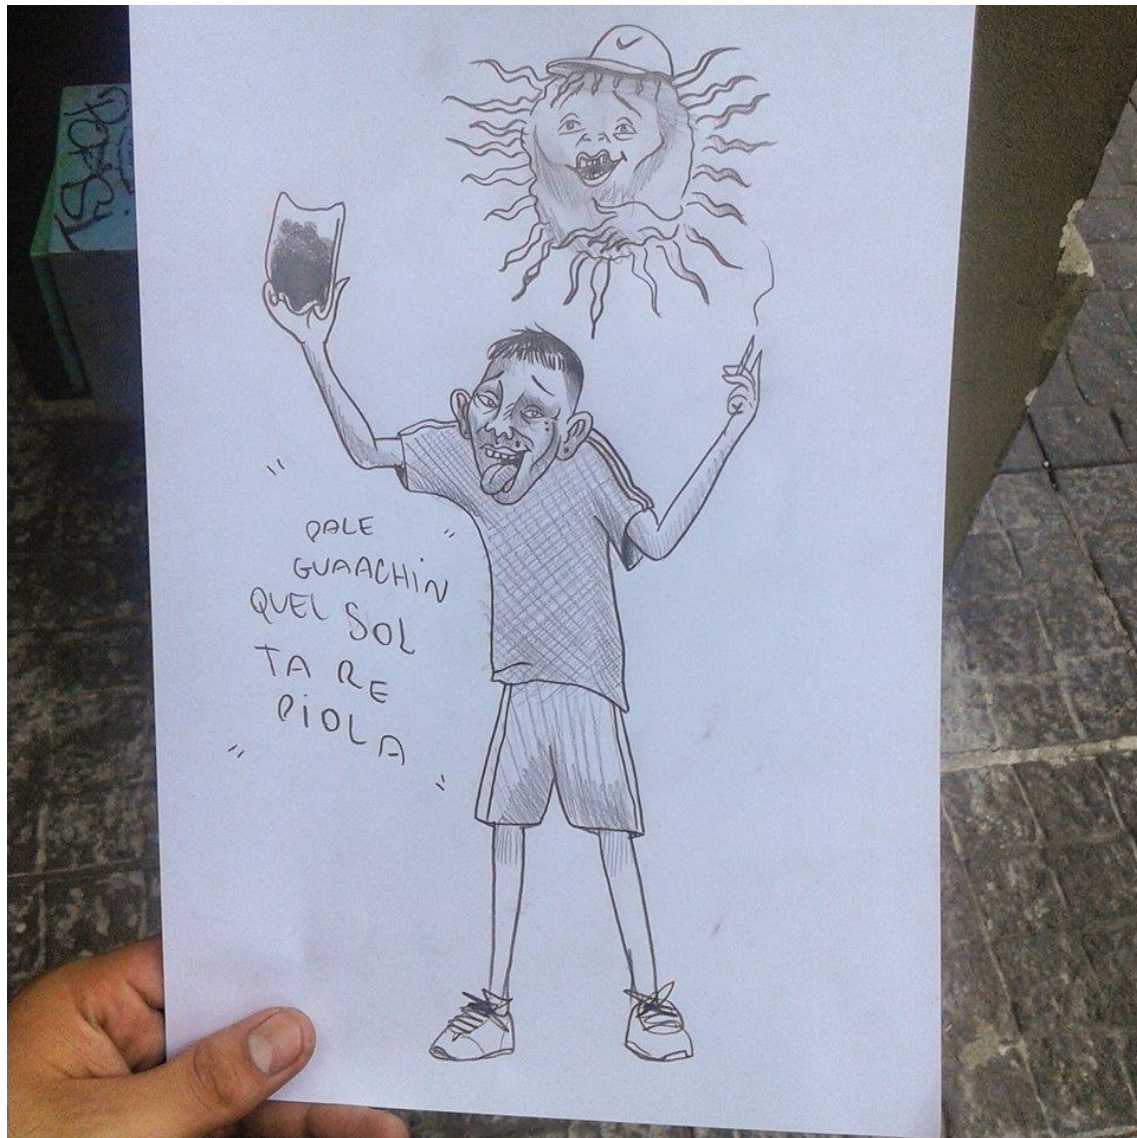 " DALE "
GUAACHIN
QUEL SOL
TA RE
PIOLA
" "